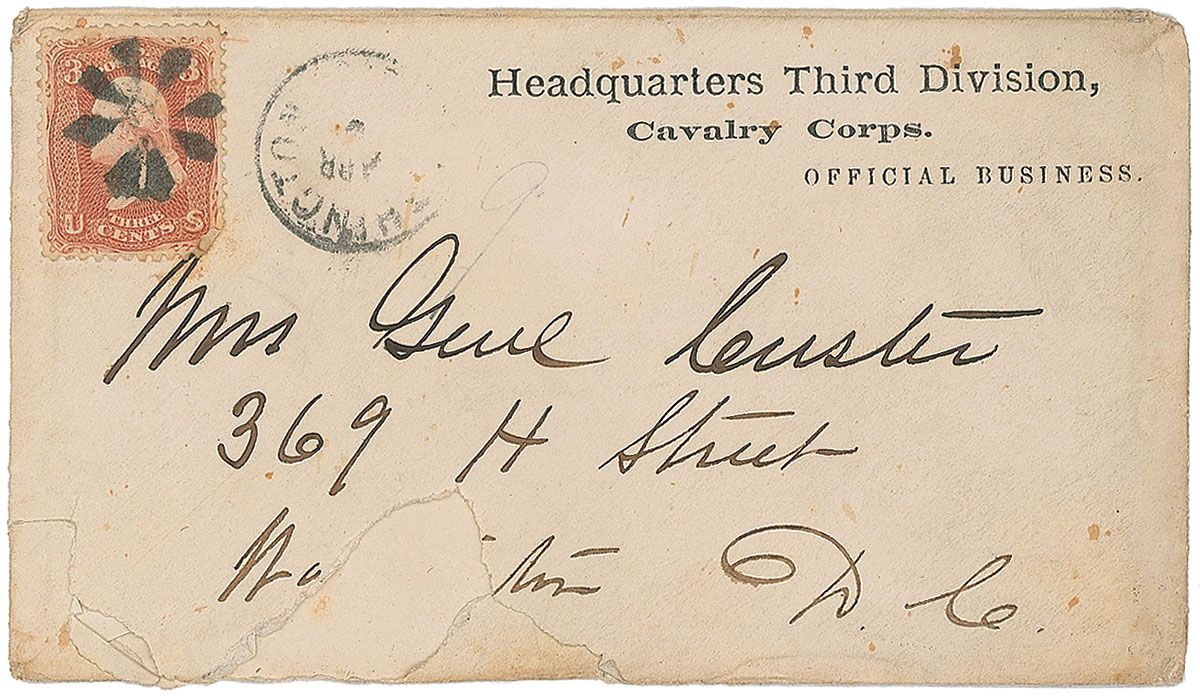 3 3
U THREE CENTS S
APR
Headquarters Third Division,
Cavalry Corps.
OFFICIAL BUSINESS.
Mrs Genl Custer
369 H Street
Wa ton D. C.